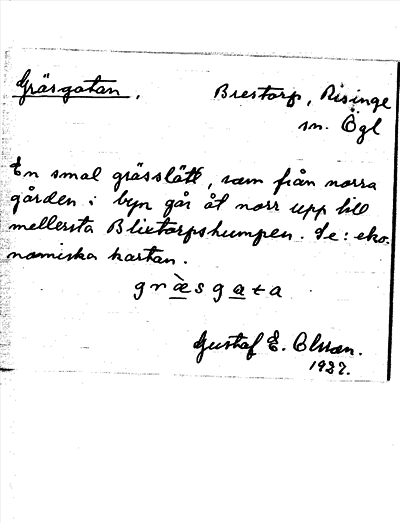 Gräsgatan.
Brestorp, Risinge
sn. Ögl
En smal grässlätt, som från norra
gården i byn går åt norr upp till
mellersta Blixtorpshumpen. Se: eko-
nomiska kartan.
græ̀sgata
Gustaf E. Olsson.
1937.